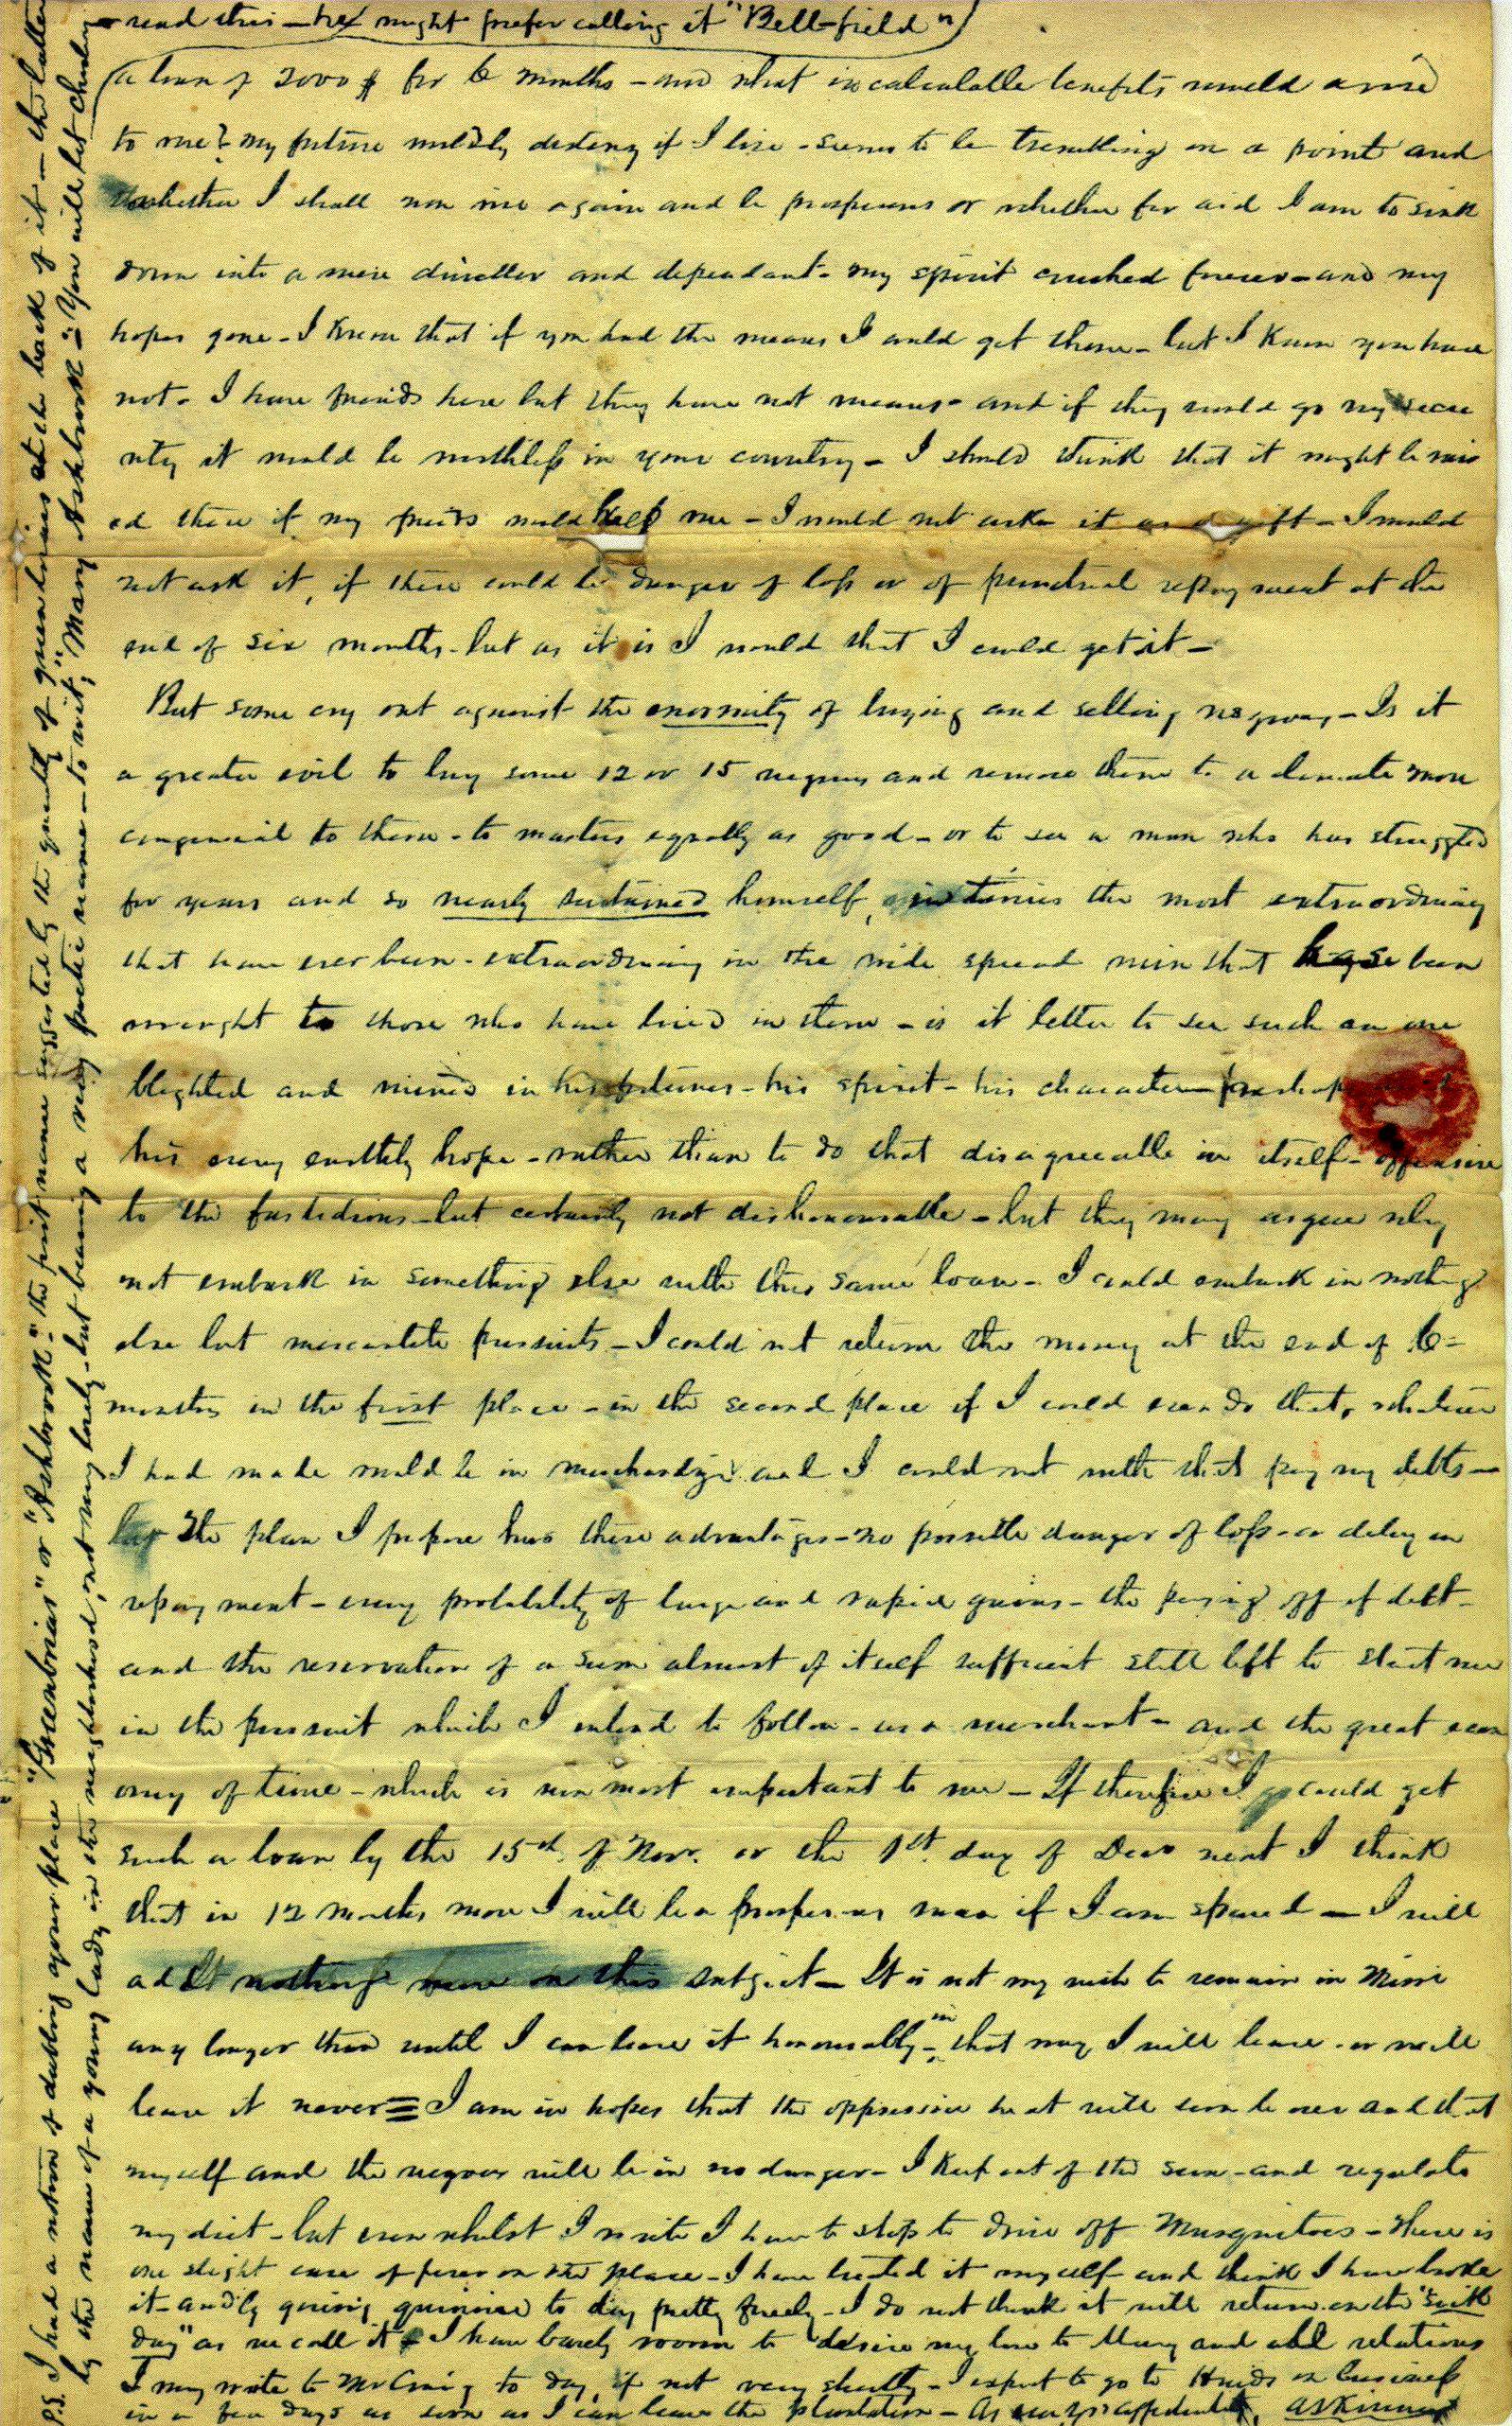 read this - he might prefer calling it "Bell-field")
(a loan of 2000 $ for 6 months - and what incalculable benefits would arise
to me? my future worldly destiny if I live - seems to be trembling on a point and
whether I shall now rise again and be prosperous or whether for aid I am to sink
down into a mere dweller and dependant - my spirit crushed forever - and my
hopes gone - I know that if you had the means I could get them - but I know you have
not - I have friends here but they have not means - and if they would go my secu
rity it would be worthless in your country - I should think that it might be rais
ed there if my friends would help me - I would not ask it as a gift - I would
not ask it, if there could be danger of loss or of punctual repayment at the
end of six months - but as it is I would that I could get it -
But some cry out against the enormity of buying and selling negroes - Is it
a greater evil to buy some 12 or 15 negroes and remove them to a climate more
congenial to them - to masters equally as good - or to see a man who has struggled
for years and so nearly sustained himself, in times the most extraordinary
that have ever been - extraordinary in the wide spread ruin that has been
wrought to those who have lived in them - is it better to see such an one
blighted and ruined in his fortunes - his spirit - his character - perhaps
his every earthly hope - rather than to do that disagreeable in itself - offensive
to the fastidious - but certainly not dishonourable - but they may argue why
not embark in something else with this same loan - I could embark in nothing
else but mercantile pursuits - I could not return the money at the end of 6 =
months in the first place - in the second place if I could even do that, whatever
I had made would be in merchandize and I could not with that pay my debts -
but the plan I propose has these advantages - no possible danger of loss - or delay in
repayment - every probability of large and rapid gains - the paying off of debt -
and the reservation of a sum almost of itself sufficient still left to start me
in the pursuit which I intend to follow - as a merchant - and the great econ
omy of time - which is now most important to me - If therefore I could get
such a loan by the 15th of Novr. or the 1st day of Decr next I think
that in 12 months more I will be a prosperous man if I am spared - I will
add nothing more on this subject - It is not my wish to remain in Missi
any longer than until I can leave it honourably - in that way I will leave - or will
leave it never = I am in hopes that the oppressive heat will soon be over and that
myself and the negroes will be in no danger - I keep out of the sun - and regulate
my diet - but even whilst I write I have to stop to drive off Musquitoes - There is
one slight case of fever on the place - I have treated it myself and think I have broke
it - and by giving quinine to day pretty freely - I do not think it will return on the "sick
day" as we call it - I have barely room to desire my love to Mary and all relations
I may write to McCraig to day, if not very shortly - I expect to go to Hinds on business
in a few days as soon as I can leave the plantation - As always affectionately,
P.S. I had a notion of dubbing your place "Greenbrias" or "Ashbrook" - the first name suggested by the quantity of green briars at the back of it - the latter
by the name of a young lady in the neighborhood, not very lovely - but bearing a very poetic name - to wit; "Mary Ashbrook" - You will let Charley